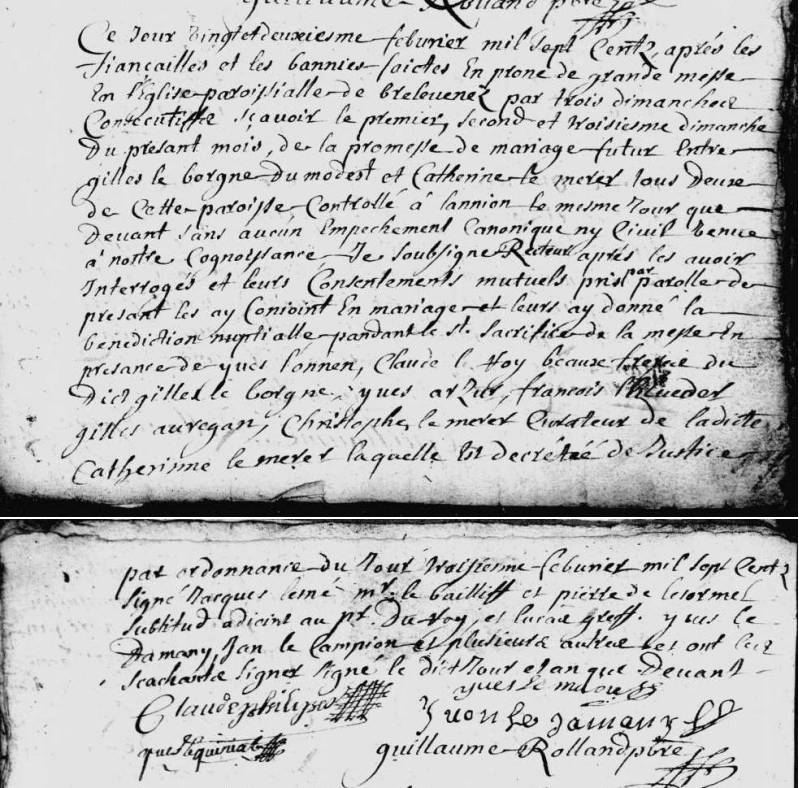 guillaume Rolland pbre
Ce Jour vingt et deuxiesme febvrier mil sept Centz, aprés les
fiançailles et les bannies faictes En prone de grande messe
En l'Eglise paroissialle de brelevenez par trois dimanches
Consecutiffs sçavoir le premier, second et troisiesme dimanche
Du presant mois, de la promesse de mariage futur Entre
gilles le borgne Du modest et Catherine le merer tous Deux
de Cette paroisse Controllé à lannion le mesme Jour que
Devant sans aucun Empechement Canonique ny Civil venue
à nostre Cognoissance Je soubsigne Recteur aprés les avoir
Interrogés et leurs Consentements mutuels pris par parolle de
presant les ay Conjoint En mariage et leurs ay donné la
benediction nuptialle pandant le st. sacrifice de la messe En
presance de yves lonnen, Claude le Roy beaux freres du
Dict gilles le borgne, yves arzur, francois
gilles auregan, Christophe le merer Curateur de ladicte
Catherinne le merer laquelle Est decretée de Justice
par ordonnance du Jour troisiesme febvrier mil sept Centz
signé Jacques lesné mr. le bailliff et pierre de
subtitud adjoint au pr. Du roy, et lucas greff. yves le
Damany, Jan le Campion et plusieurs autres et ont les
scachants signer signé le dict Jour et an que Devant
yves le
Claude philipes
Yvon le damany
guillaume Rolland pbre